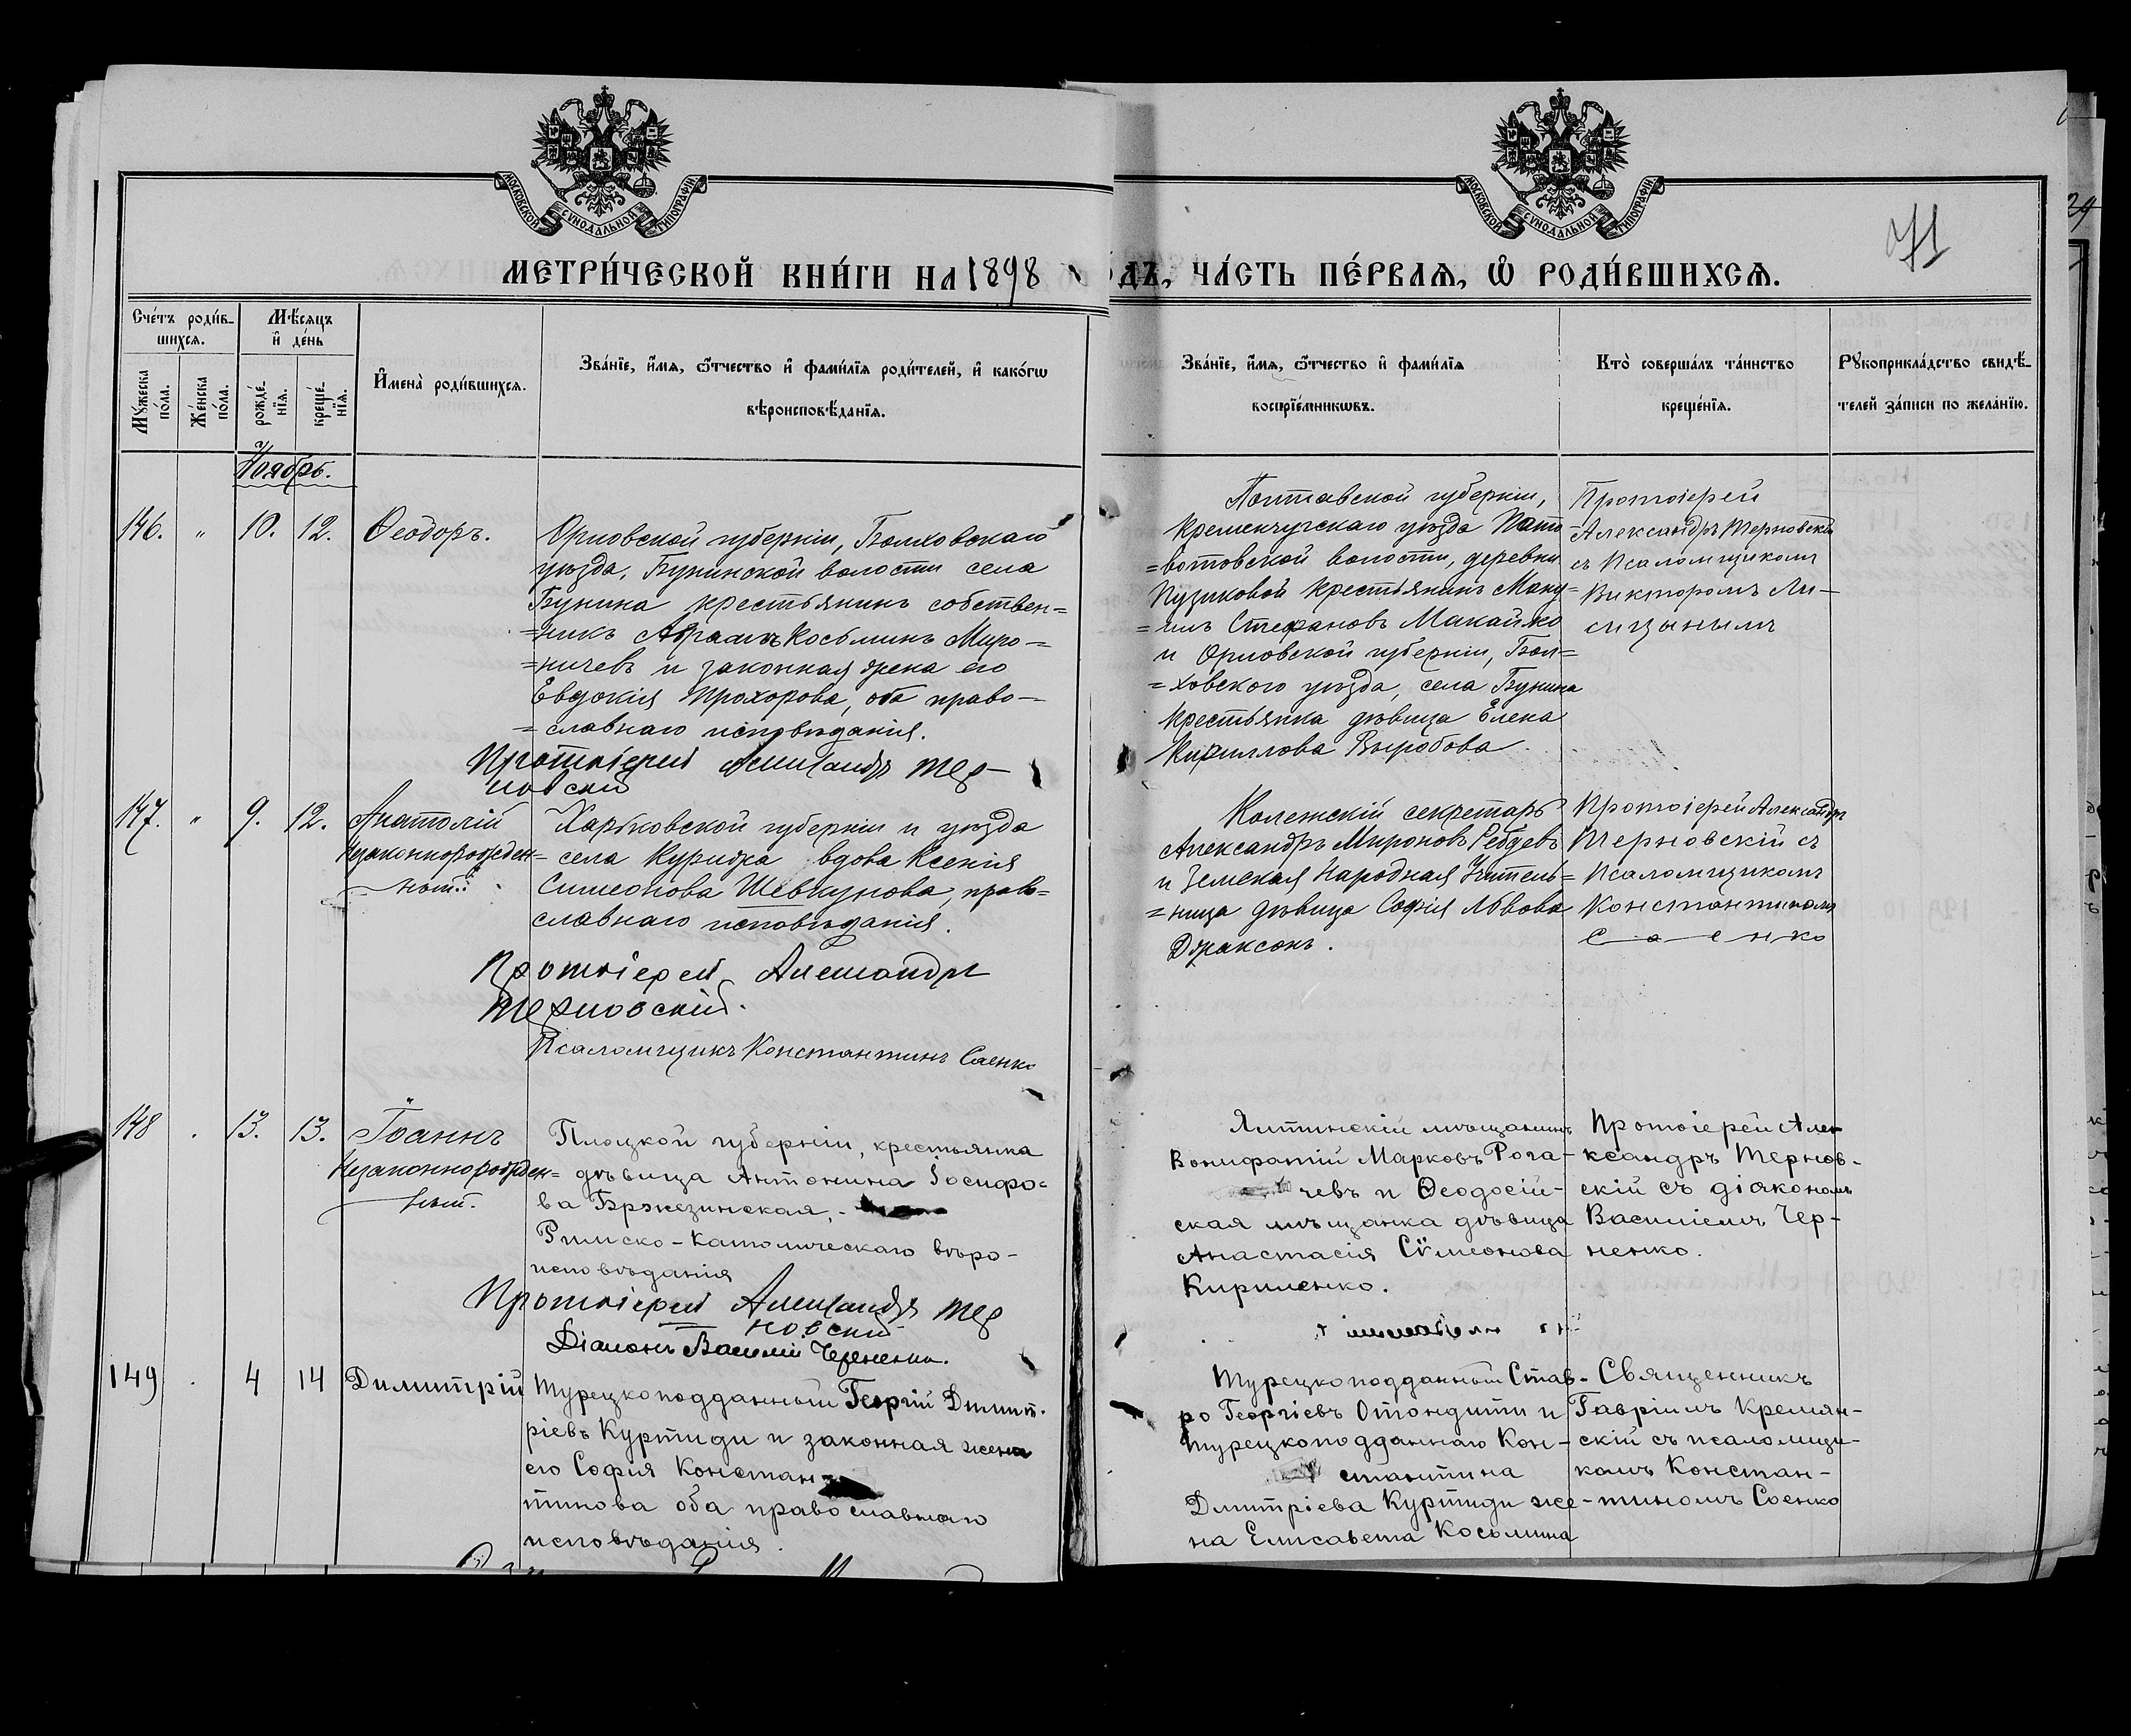 МОСКОВСКОЙ СУНОДАЛЬНОЙ ТИПОГРАФІИ
МОСКОВСКОЙ СУНОДАЛЬНОЙ ТИПОГРАФІИ
71
МЕТРИ́ЧЕСКОЙ КНИ́ГИ НА 1898
ДЪ, ЧА́СТЬ ПЕ́РВАѦ, Ѡ РОДИ́ВШИХСѦ.
Сче́тъ роди́в-
шихсѧ.
Мѣ́сяцъ
и҆ де́нь
Мꙋ́жеска по́ла.
Же́нска по́ла.
рожде́-нїѧ.
креще́-нїѧ.
И҆мена̀ роди́вшихсѧ.
Зва́нїе, и҆́мѧ, ѻ҆́тчество и҆ фами́лїѧ роди́телей, и҆ како́гѡ
вѣроисповѣ́данїѧ.
Зва́нїе, и҆́мѧ, ѻ҆́тчество и҆ фами́лїѧ
воспрїе́мникѡвъ.
Кто̀ соверша́лъ та́инство
креще́нїѧ.
Рꙋкоприкла́дство свидѣ́-
телей за́писи по жела́нїю.
Ноябрь.
146. " 10. 12. Ѳеодоръ.
Орловской губерніи, Болховскаго
уѣзда, Бунинской волости села
Бунина крестьянинъ собствен=
=никъ Абрамъ Косьминъ Миро=
=ничевъ и законная жена его
Евдокія Прохорова, оба право-
=славнаго исповѣданія.
Протоіерей Александръ Тер-
новскій
Полтавской губерніи,
Кременчугскаго уѣзда
=вотовской волости, деревни
Пузиковой крестьянинъ
Стефановъ Макайко
и Орловской губерніи, Бол=
=ховского уѣзда, села Бунина
крестьянка дѣвица Елена
Кириллова Выробова.
Протоіерей
Александръ Терновскій
съ Псаломщикомъ
Викторомъ Ли-
сицынымъ
147. " 9. 12. Анатолій
Незаконнорожден=
ный.
Харьковской губерніи и уѣзда
села вдова Ксенія
Симеонова Шевчунова, право=
славнаго исповѣданія.
Протоіерей Александръ
Терновскій.
Псаломщикъ Константинъ Саенко
Колежскій секретарь
Александръ Мироновъ
и Земская Народная Учитель=
=ница дѣвица Софія Львова
Джаксонъ.
Протоіерей Александръ
Терновскій съ
Псаломщикомъ
Константиномъ
Саенко
148 . 13. 13. Іоаннъ
Незаконнорожден=
ный.
Плоцкой губерніи, крестьянка
дѣвица Антонина Іосифо=
ва Бржезинская,
Римско-Католическаго вѣро-
исповѣданія
Протоіерей Александръ Тер
новскій
Діаконъ Василій Черненко.
Ялтинскій мѣщанинъ
Вонифатій Марковъ Рога-
чевъ и Ѳеодосій-
ская мѣщанка дѣвица
Анастасія Сѵмеонова
Кириленко.
Протоіерей Але-
ксандръ Тернов-
скій съ діакономъ
Василіемъ Чер-
ненко.
149 . 4 14 Димитрій
Турецкоподданный Георгій Димит-
ріевъ Куртиди и законная жена
его Софія Констан-
тинова оба православнаго
исповѣданія.
Турецкоподданный Став-
ро Георгіевъ и
Турецкоподданнаго Кон-
стантина
Дмитріева Куртиди же-
на Елисавета Косьмина
Священникъ
Гавріилъ Кремян-
скій съ псаломщи-
комъ Констан-
тиномъ Саенко